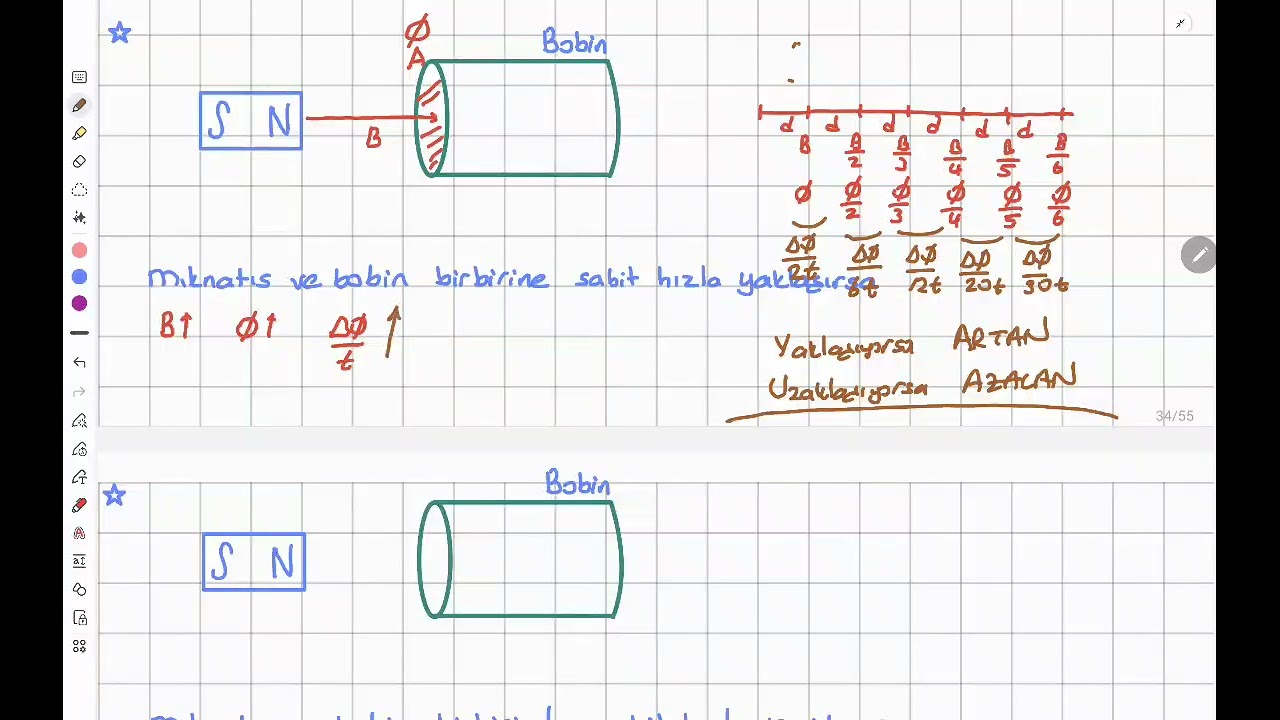 Ø
Bobin
A
S N
B
d d d d d d
B B/2 B/3 B/4 B/5 B/6
Ø Ø/2 Ø/3 Ø/4 Ø/5 Ø/6
ΔØ/2t ΔØ/6t ΔØ/12t ΔØ/20t ΔØ/30t
mıknatıs ve bobin birbirine sabit hızla yaklaşırsa
B↑ Ø↑ ΔØ/t ↑
Yaklaşıyorsa ARTAN
Uzaklaşıyorsa AZALAN
34/55
Bobin
S N